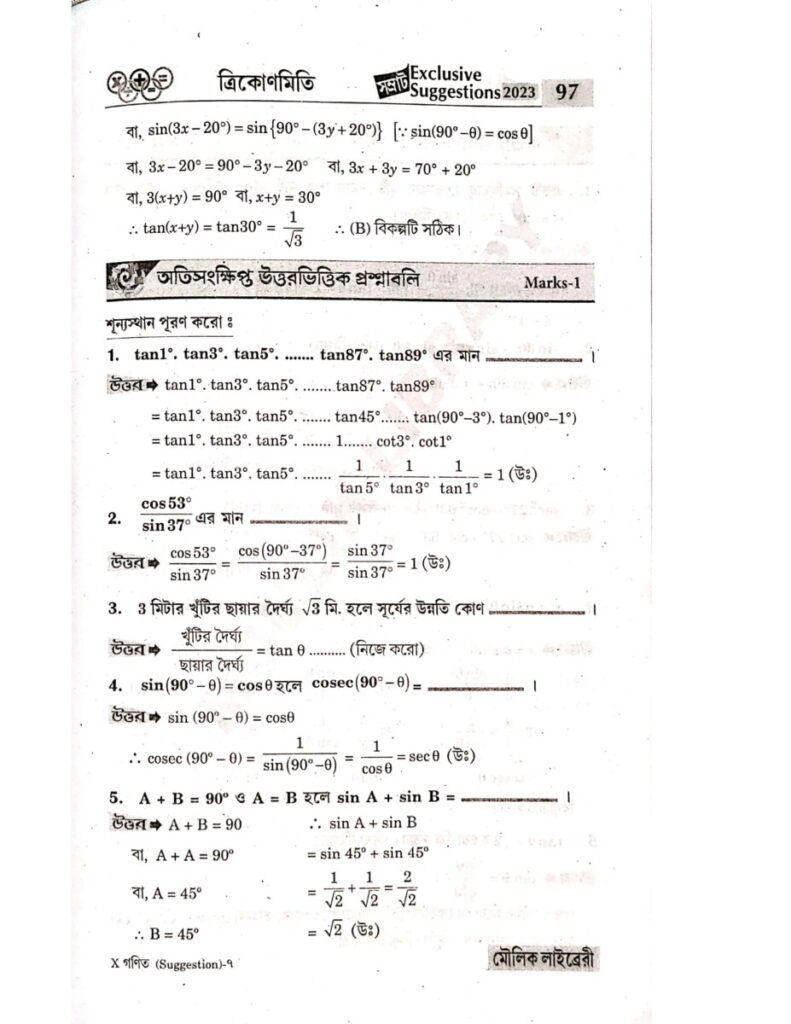 ত্রিকোণমিতি সম্রাট Exclusive Suggestions 2023 97
বা, sin(3x – 20°) = sin{90° – (3y + 20°)} [∵ sin(90° – θ) = cos θ]
বা, 3x – 20° = 90° – 3y – 20° বা, 3x + 3y = 70° + 20°
বা, 3(x+y) = 90° বা, x+y = 30°
∴ tan(x+y) = tan30° = 1/√3 ∴ (B) বিকল্পটি সঠিক।
অতিসংক্ষিপ্ত উত্তরভিত্তিক প্রশ্নাবলি Marks-1
শূন্যস্থান পূরণ করো ঃ
1. tan1°. tan3°. tan5°. ....... tan87°. tan89° এর মান ________ ।
উত্তর ➡ tan1°. tan3°. tan5°. ........ tan87°. tan89°
= tan1°. tan3°. tan5°. ....... tan45°....... tan(90°–3°). tan(90°–1°)
= tan1°. tan3°. tan5°. ....... 1....... cot3°. cot1°
= tan1°. tan3°. tan5°. ....... 1/tan 5° . 1/tan 3° . 1/tan 1° = 1 (উঃ)
2. cos 53°/sin 37° এর মান ________ ।
উত্তর ➡ cos 53°/sin 37° = cos(90° – 37°)/sin 37° = sin 37°/sin 37° = 1 (উঃ)
3. 3 মিটার খুঁটির ছায়ার দৈর্ঘ্য √3 মি. হলে সূর্যের উন্নতি কোণ ________ ।
উত্তর ➡ খুঁটির দৈর্ঘ্য/ছায়ার দৈর্ঘ্য = tan θ .......... (নিজে করো)
4. sin(90° – θ) = cos θ হলে cosec(90° – θ) = ________ ।
উত্তর ➡ sin (90° – θ) = cosθ
∴ cosec (90° – θ) = 1/sin(90° – θ) = 1/cos θ = sec θ (উঃ)
5. A + B = 90° ও A = B হলে sin A + sin B = ________ ।
উত্তর ➡ A + B = 90 ∴ sin A + sin B
বা, A + A = 90° = sin 45° + sin 45°
বা, A = 45° = 1/√2 + 1/√2 = 2/√2
∴ B = 45° = √2 (উঃ)
X গণিত (Suggestion)-৭ মৌলিক লাইব্রেরী